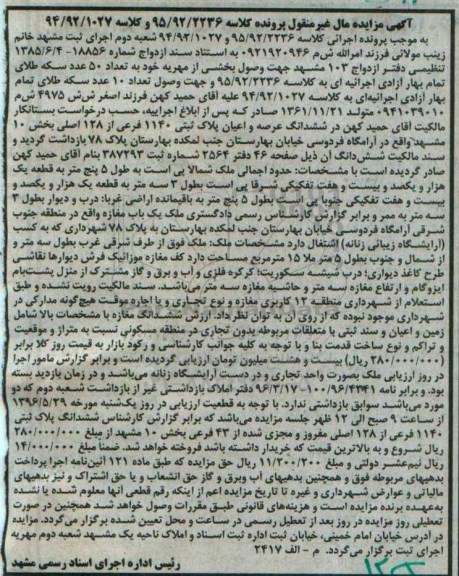 آگهی مزایده مال غیرمنقول پرونده کلاسه ۹۵/۹۲/۲۲۳۶ و کلاسه ۹۴/۹۲/۱۰۲۷
به موجب پرونده اجرائی کلاسه ۹۵/۹۲/۲۲۳۶ و ۹۴/۹۲/۱۰۲۷ شعبه دوم اجرای ثبت مشهد خانم
زینب مولائی فرزند امرالله ش‌م ۰۹۲۱۹۲۰۹۴۶ به استناد سند ازدواج شماره ۱۸۸۵۶- ۱۳۸۵/۶/۴
تنظیمی دفتر ازدواج ۱۰۳ مشهد جهت وصول بخشی از مهریه خود به تعداد ۵۰ عدد سکه طلای
تمام بهار آزادی اجرائیه ای به کلاسه ۹۵/۹۲/۲۲۳۶ و جهت وصول تعداد ۱۰ عدد سکه طلای تمام
بهار آزادی اجرائیه‌ای به کلاسه ۹۴/۹۲/۱۰۲۷ علیه آقای حمید کهن فرزند اصغر ش‌ش ۴۹۷۵ ش‌م
۰۹۴۱۰۳۹۰۱۰ متولد ۱۳۶۱/۱۱/۲۱ صادر که پس از ابلاغ اجراییه، حسب درخواست بستانکار
مالکیت آقای حمید کهن در ششدانگ عرصه و اعیان پلاک ثبتی ۱۱۴۰ فرعی از ۱۲۸ اصلی بخش ۱۰
مشهد واقع در آرامگاه فردوسی خیابان بهارستان جنب لمکده بهارستان پلاک ۷۸ بازداشت گردید و
سند مالکیت شش‌دانگ آن ذیل صفحه ۴۶ دفتر ۲۵۶۴ شماره ثبت ۳۸۷۲۹۳ بنام آقای حمید کهن
صادر گردیده است با مشخصات: حدود اجمالی ملک شمالا پی است به طول ۵ پنج متر به قطعه یک
هزار و یکصد و بیست و هفت تفکیکی شرقا پی است بطول ۳ سه متر به قطعه یک هزار و یکصد و
بیست و هفت تفکیکی جنوبا پی است بطول ۵ پنج متر به باقیمانده اراضی غربا: درب و دیوار بطول ۳
سه متر به ممر و برابر گزارش کارشناس رسمی دادگستری ملک یک باب مغازه واقع در منطقه جنوب
شرقی آرامگاه فردوسی خیابان بهارستان جنب لمکده بهارستان به پلاک ۷۸ شهرداری که به کسب
(آرایشگاه زیبائی زنانه) اشتغال دارد مشخصات ملک: ملک فوق از طرف شرقی غرب بطول سه متر و
از شمال و جنوب بطول ۵ متر ملا ۱۵ مترمربع مساحت دارد کف مغازه موزائیک فرش دیوارها نقاشی
طرح کاغذ دیواری؛ درب شیشه سکوریت؛ کرکره فلزی و آب و برق و گاز مشترک از منزل پشت‌بام
ایزوگام و ارتفاع مغازه سه متر و حاشیه مغازه سه متر می‌باشد. سند مالکیت رویت نشده و طبق
استعلام از شهرداری منطقه ۱۲ کاربری مغازه و نوع تجاری و یا اجاره موقت هیچ‌گونه مدارکی در
شهرداری موجود نبوده که از روی آن به توان نظر داد. ارزش ششدانگ مغازه با مشخصات بالا شامل
زمین و اعیان و سند ثبتی با متعلقات مربوطه بدون تجاری در منطقه مسکونی نسبت به متراژ و موقعیت
و تراکم و نوع ساخت قدمت بنا و با توجه به کلیه جوانب کارشناسی و رکود بازار به قیمت روز کلا برابر
(۲۸۰/۰۰۰/۰۰۰ ریال) بیست و هشت میلیون تومان ارزیابی گردیده است و برابر گزارش مامور اجرا
در روز ارزیابی ملک بصورت واحد تجاری و در دست آرایشگاه زنانه می‌باشند و در زمان بازدید بسته
بود. و برابر نامه ۱۰۰/۹۶/۴۳۴۱- ۹۶/۳/۱۷ دفتر املاک بازداشتی غیر از بازداشت شعبه دوم که دو
مورد می‌باشد سوابق بازداشتی ندارد. با توجه به قطعیت ارزیابی در روز یک‌شنبه مورخه ۱۳۹۶/۵/۲۹
از ساعت ۹ صبح الی ۱۲ ظهر جلسه مزایده می‌باشد که برابر گزارش کارشناس ششدانگ پلاک ثبتی
۱۱۴۰ فرعی از ۱۲۸ اصلی مفروز و مجزی شده از ۴۳ فرعی بخش ۱۰ مشهد از مبلغ ۲۸۰/۰۰۰/۰۰۰
ریال شروع و به بالاترین قیمت که خریدار داشته باشد فروخته خواهد شد. ضمنا مبلغ ۱۴/۰۰۰/۰۰۰
ریال نیم‌عشر دولتی و مبلغ ۱۱/۲۰۰/۲۰۰ ریال حق مزایده که طبق ماده ۱۲۱ آئین‌نامه اجرا پرداخت
بدهیهای مربوطه فوق و همچنین بدهیهای آب وبرق و گاز حق انشعاب و یا حق اشتراک و نیز بدهیهای
مالیاتی و عوارض شهرداری و غیره تا تاریخ مزایده اعم از اینکه رقم قطعی آنها معلوم شده یا نشده
به‌عهده برنده مزایده است و هزینه‌های قانونی طبق مقررات وصول خواهد شد همچنین در صورت
تعطیلی روز مزایده در روز بعد از تعطیل رسمی در ساعت و محل تعیین شده برگزار می‌گردد. مزایده
در آدرس خیابان امام خمینی، خیابان ثبت اداره ثبت اسناد و املاک ناحیه یک مشهد شعبه دوم مهریه
اجرای ثبت برگزار می‌گردد. م - الف ۲۴۱۷
رئیس اداره اجرای اسناد رسمی مشهد